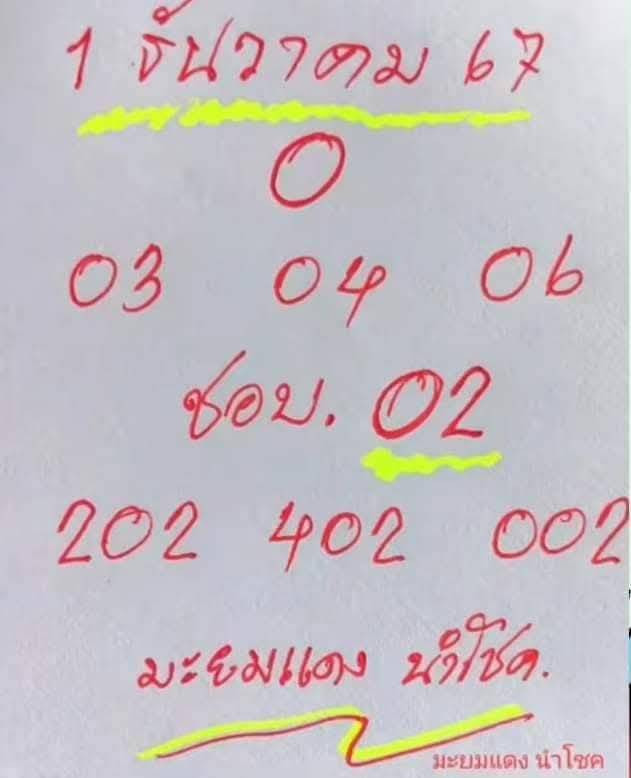 1 ธันวาคม 67
0
03 04 06
ชอบ. 02
202 402 002
มะยมแดง นำโชค.
มะยมแดง นำโชค